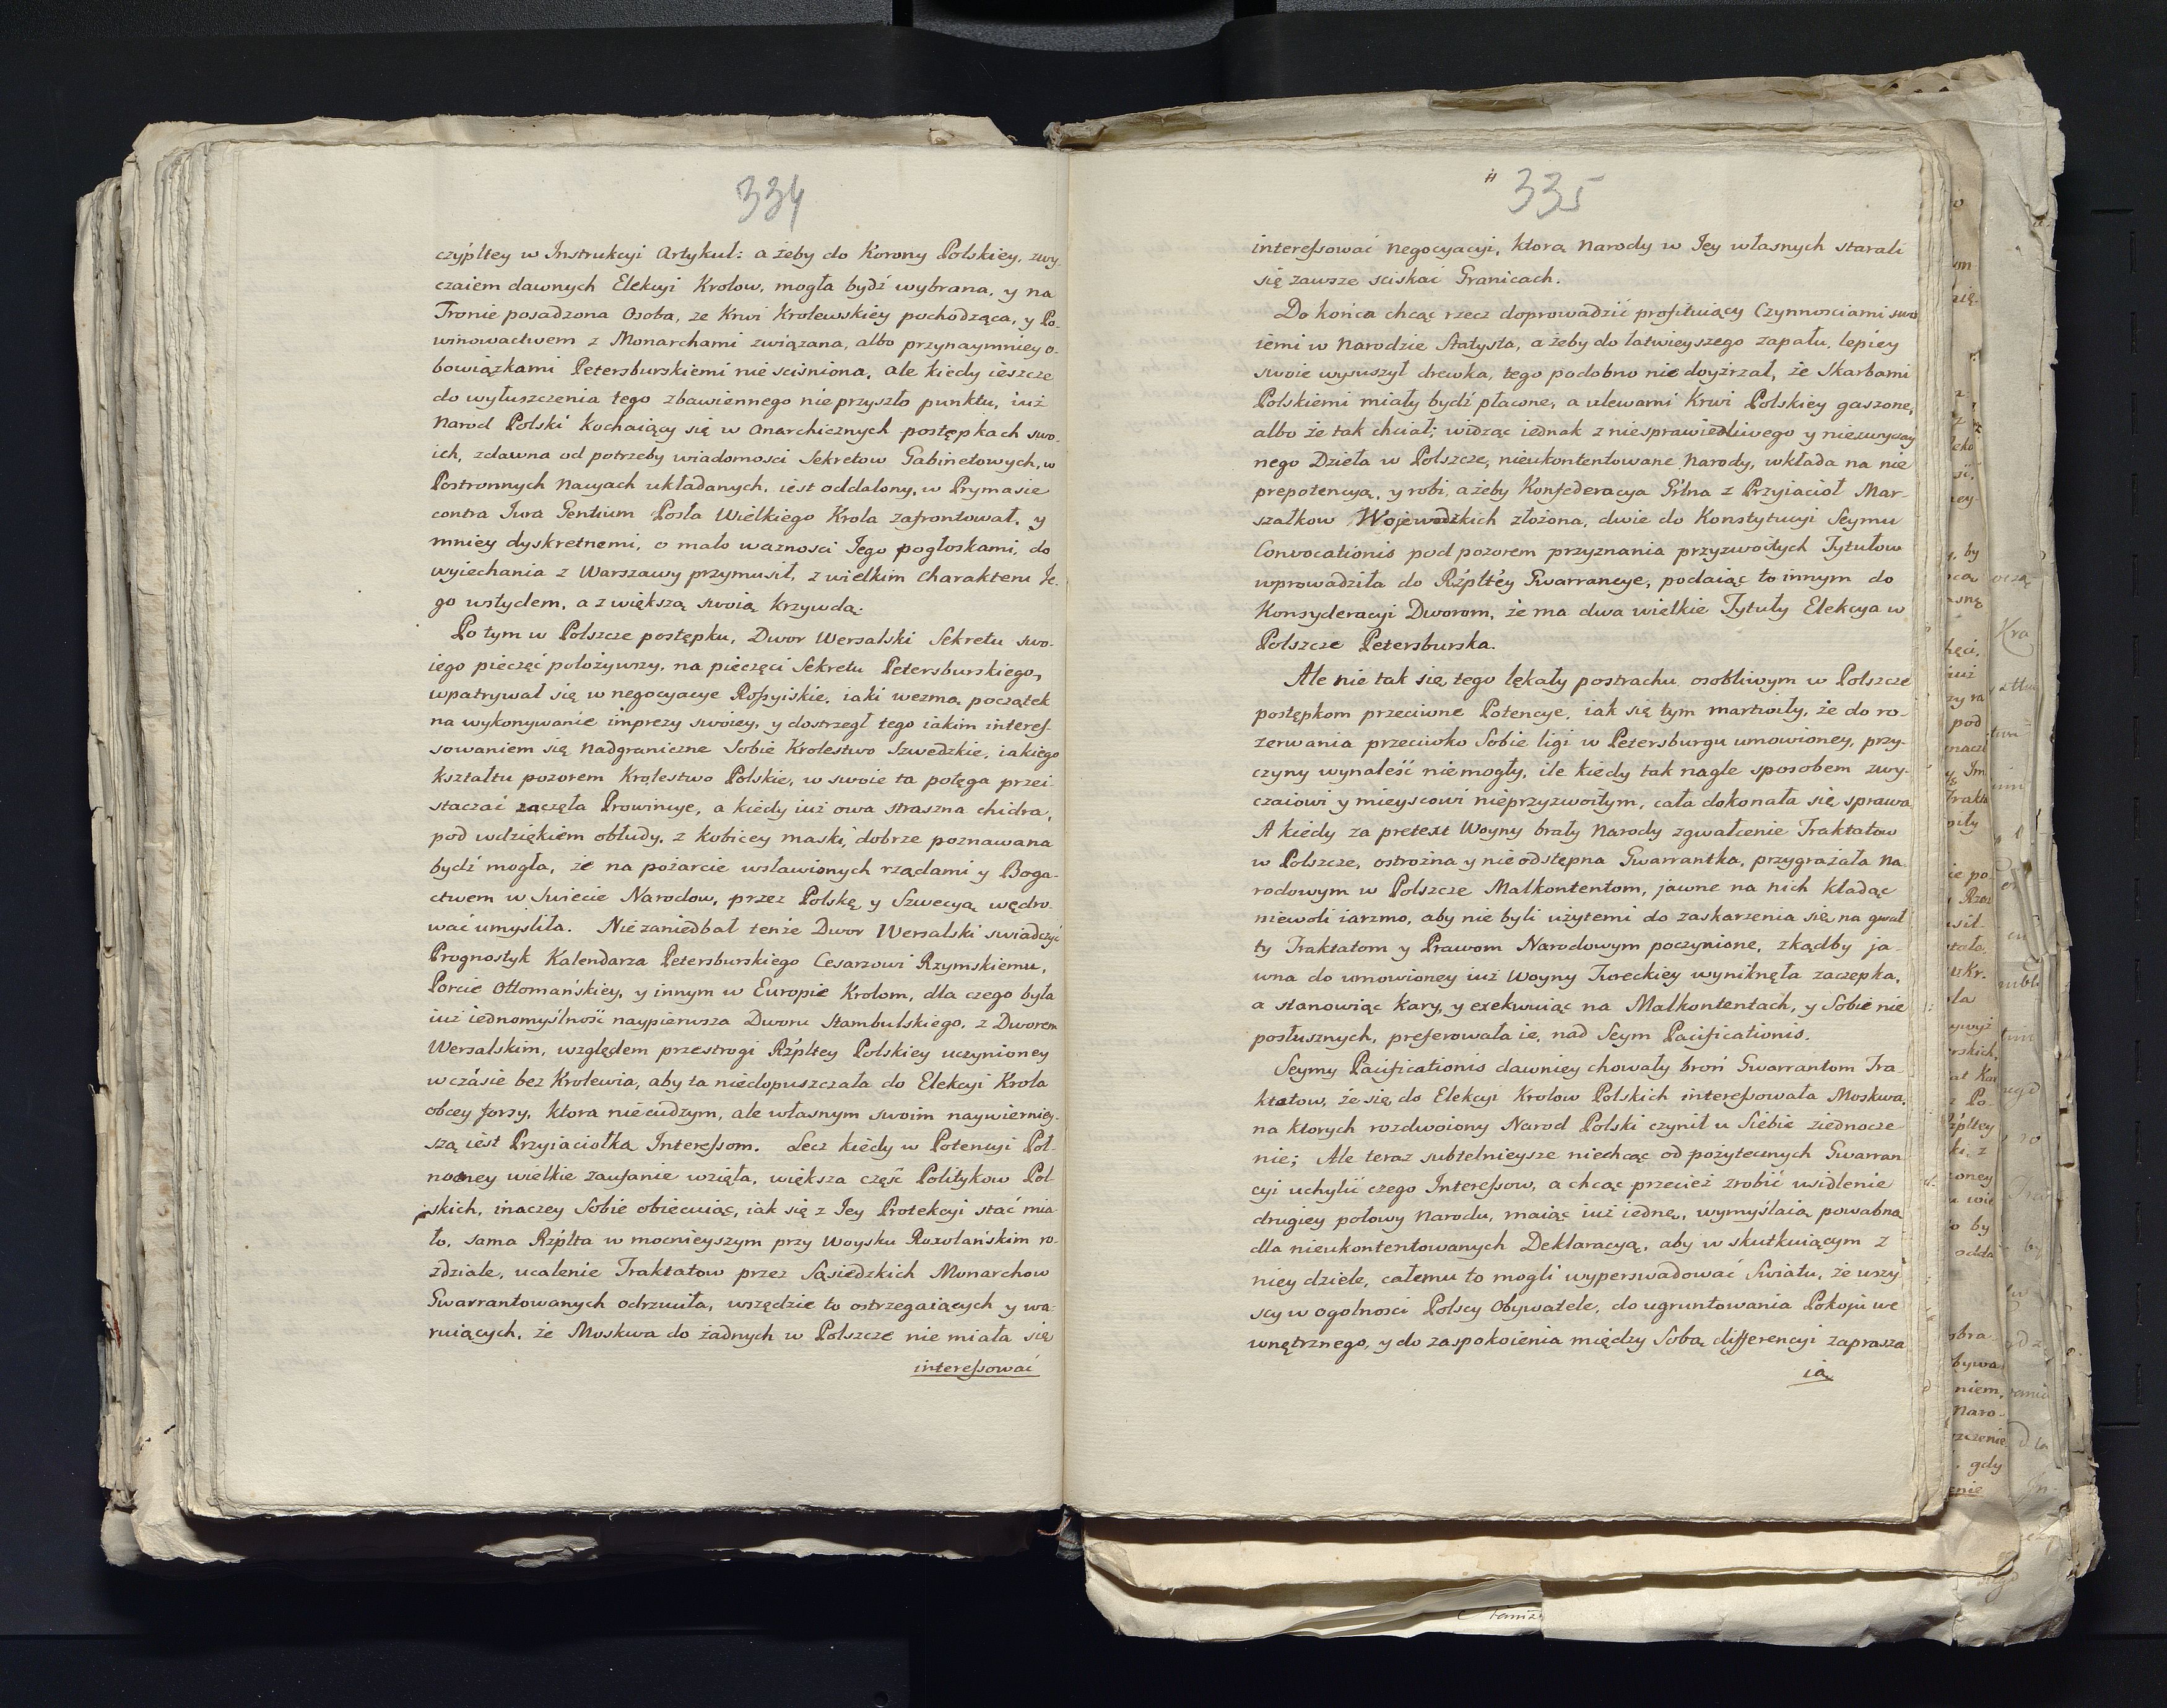 334
czypltey w Instrukcyi Artykuł: a żeby do Korony Polskiey, zwy-
czaiem dawnych Elekcyi Krolow, mogła bydź wybrana, y na
Tronie posadzona Osoba, ze Krwi Krolewskiey pochodząca, y Po-
winowactwem z Monarchami związana, albo przynaymniey o-
bowiązkami Petersburskiemi nie sciśniona, ale kiedy ieszcze
do wyłuszczenia tego zbawiennego nie przyszło punktu, iuż
Narod Polski kochaiący się w Anarchicznych postępkach swo-
ich, zdawna od potrzeby wiadomosci Sekretow Gabinetowych, w
Postronnych Nacyach układanych, iest oddalony, w Prymasie
contra Jura Gentium Posła Wielkiego Krola zafrontował, y
mniey dyskretnemi, o mało wazności Jego pogłoskami, do
wyiechania z Warszawy przymusił, z wielkim Charakteru Je-
go wstydem, a z większą swoią Krzywdą.
Po tym w Polszcze postępku, Dwor Wersalski Sekretu swo-
iego pieczęć położywszy, na pieczęci Sekretu Petersburskiego,
wpatrywał się w negocyacye Rossyiskie, iaki wezmą początek
na wykonywanie imprezy swoiey, y dostrzegł tego iakim interes-
sowaniem się Nadgraniczne Sobie Krolestwo Szwedzkie, iakiego
kształtu pozorem Krolestwo Polskie, w swoie ta potęga przei-
staczać zaczęła Prowincye, a kiedy iuż owa straszna chidra,
pod wdziękiem obłudy, z kobicey maski, dobrze poznawana
bydź mogła, że na pożarcie wsławionych rządami y Boga-
ctwem w Swiecie Narodow, przez Polskę y Szwecyą wędro-
wać umyśliła. Nie zaniedbał tenże Dwor Wersalski swiadczyć
Prognostyk Kalendarza Petersburskiego Cesarzowi Rzymskiemu,
Porcie Ottomańskiey, y innym w Europie Krolom, dla czego była
iuż iednomyślność naypierwsza Dworu Stambulskiego, z Dworem
Wersalskim, względem przestrogi Rzpltey Polskiey uczynioney
w czásie bez Krolewia, aby ta niedopuszczała do Elekcyi Krola
obcey forsy, ktora nie cudzym, ale własnym swoim naywierniey-
szą iest Przyiaciołka Interessom. Lecz kiedy w Potencyi Poł-
nocney wielkie zaufanie wzięła, większa część Politykow Pol-
skich, inaczey Sobie obiecuiąc, iak się z Jey Protekcyi stać mia-
ło, sama Rzplta w mocnieyszym przy Woysku Roxolańskim ro-
zdziale, ucalenie Traktatow przez Sąsiedzkich Monarchow
Gwarrantowanych odrzuciła, wszędzie to ostrzegaiących y wa-
ruiących, że Moskwa do żadnych w Polszcze nie miała się
interessować
335
interessować negocyacyi, ktorą Narody w Jey własnych starali
się zawsze sciskać Granicach.
Do końca chcąc rzecz doprowadzić profituiący Czynnosciami swo
iemi w Narodzie Statysta, a żeby do łatwieyszego zapału, lepiey
swoie wysuszył drewka, tego podobno nie doyźrzał, że Skarbami
Polskiemi miały bydź płacone, a ulewami Krwi Polskiey gaszone,
albo że tak chciał; widząc iednak z niesprawiedliwego y niezwyczay
nego Dzieła w Polszcze, nieukontentowane Narody, wkłada na nie
prepotencyą, y robi, ażeby Konfederacya Gilna z Przyiacioł Mar-
szałkow Wojewodzkich złożona, dwie do Konstytucyi Seymu
Convocationis pod pozorem przyznania przyzwoitych Tytułow
wprowadziła do Rzpltey Gwarrancye, podaiąc to innym do
Konsyderacyi Dworom, że ma dwa wielkie Tytuły Elekcya w
Polszcze Petersburska.
Ale nie tak się tego lękały postrachu osobliwym w Polszcze
postępkom przeciwne Potencye, iak się tym martwiły, że do ro-
zerwania przeciwko Sobie ligi w Petersburgu umowioney, przy-
czyny wynaleść niemogły, ile kiedy tak nagle sposobem zwy-
czaiowi y mieyscowi nieprzyzwoitym, cała dokonała się sprawa
A kiedy za pretext Woyny brały Narody zgwałcenie Traktatow
w Polszcze, ostrożna y nieodstępna Gwarrantka, przygrażała Na
rodowym w Polszcze Malkontentom, jawne na nich kładąc
niewoli iarzmo, aby nie byli użytemi do zaskarżenia się na gwał
ty Traktatom y Prawom Narodowym poczynione, zkądby ja-
wna do umowioney iuż Woyny Tureckiey wyniknęła zaczepka,
a stanowiąc Kary, y exekwuiąc na Malkontentach, y Sobie nie
posłusznych, preferowała ie, nad Seym Pacificationis.
Seymy Pacificationis dawniey chowały broń Gwarrantom Tra-
ktatow, że się do Elekcyi Krolow Polskich interessowała Moskwa,
na ktorych rozdwoiony Narod Polski czynił u Siebie ziednocze
nie; Ale teraz subtelnieysze niechcąc od pożytecznych Gwarran
cyi uchylić czego Interessow, a chcąc przecież zrobić usidlenie
drugiey połowy Narodu, maiąc iuż iednę, wymyślaią powabną
dla nieukontentowanych Deklaracyą, aby w skutkuiącym z
niey dziele, całemu to mogli wyperswadować Swiatu, że wszy
scy w ogolnosci Polscy Obywatele, do ugruntowania Pokoju we
wnętrznego, y do zaspokoienia między Sobą differencyi zaprasza
ią